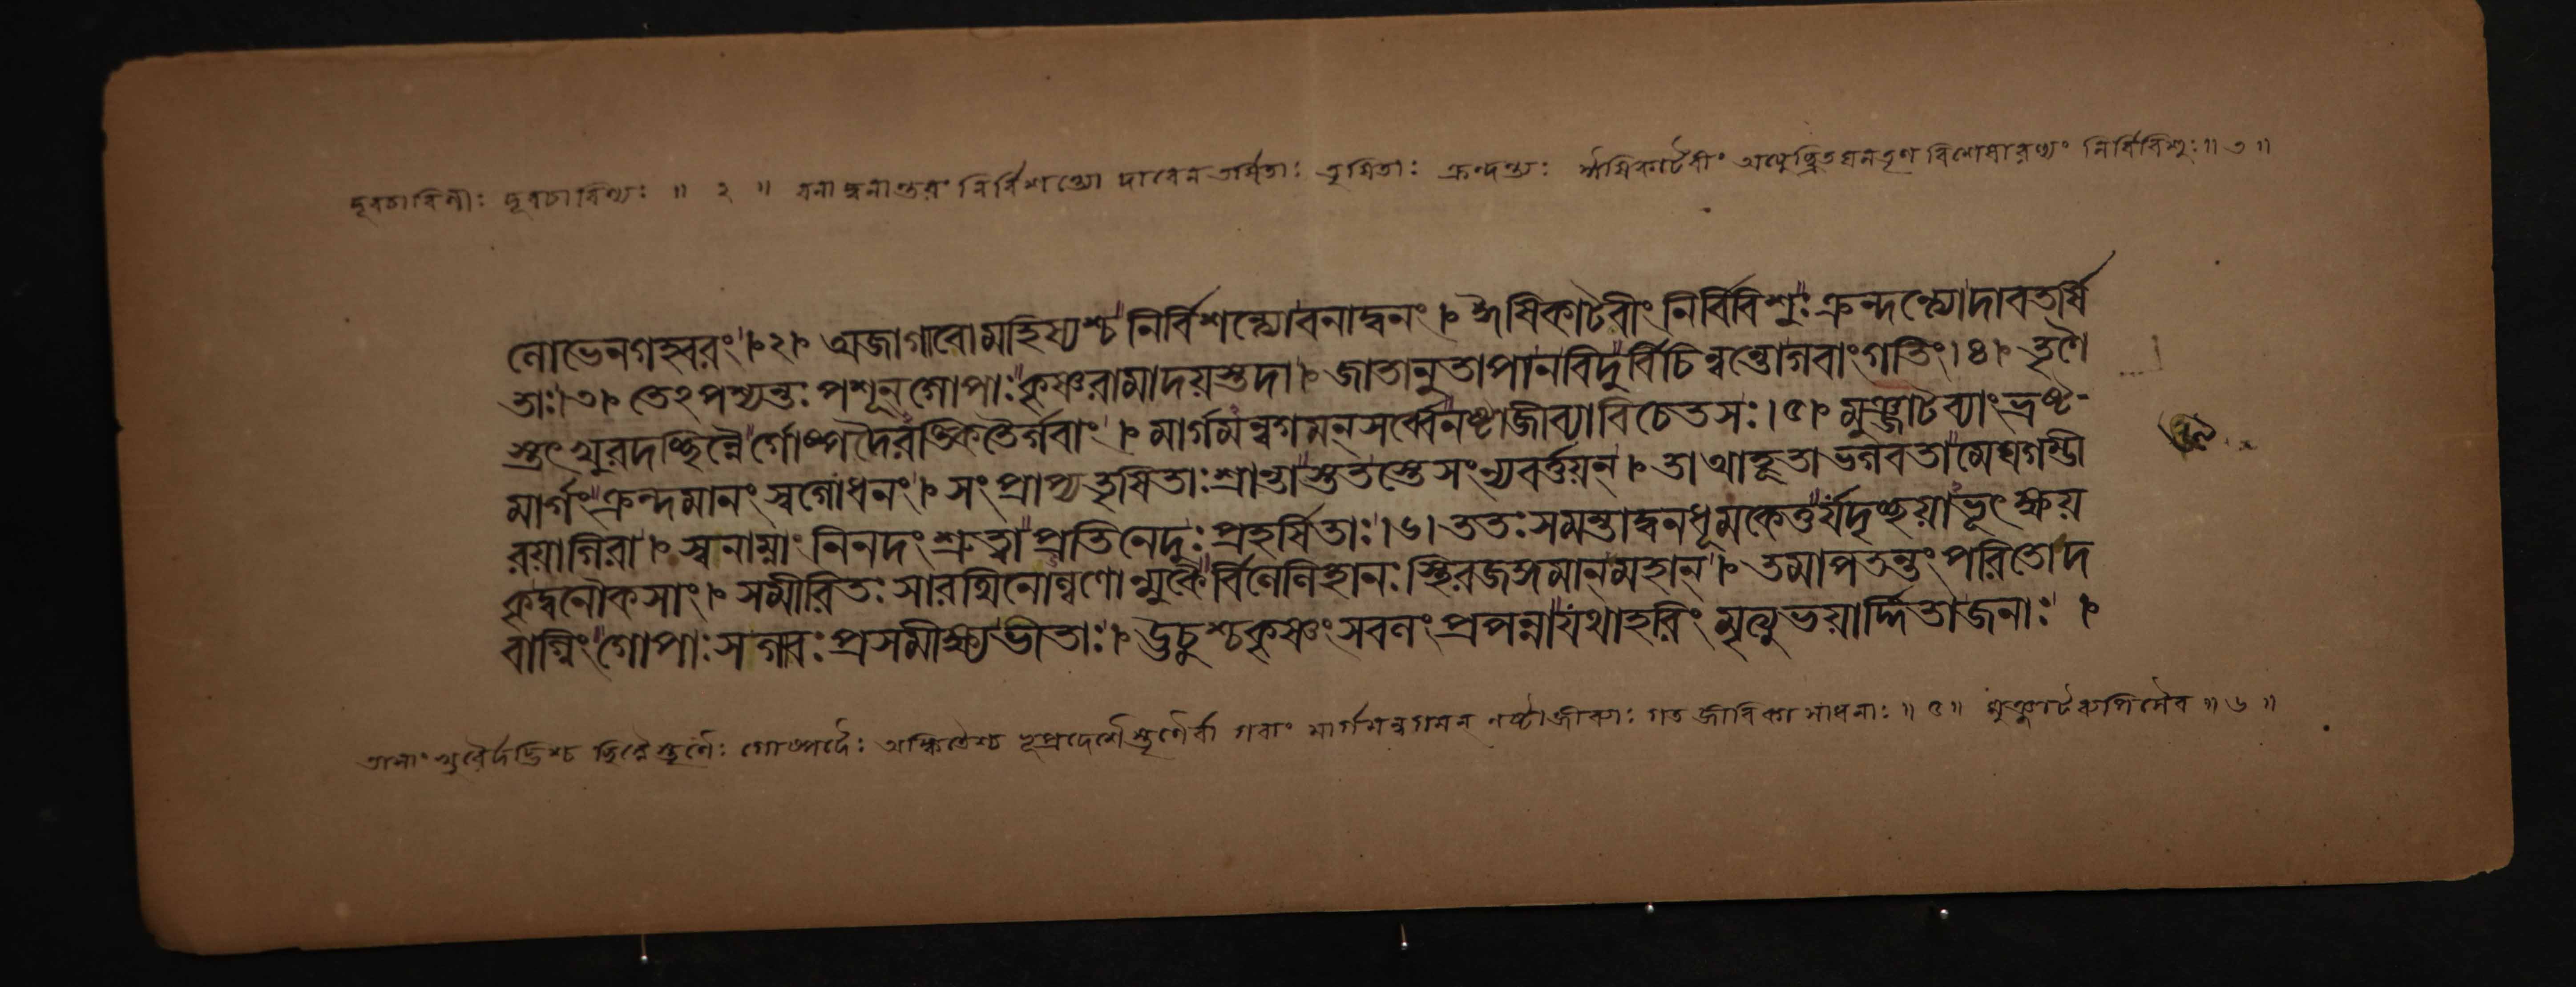 দূরচারিণীঃ দূরচারিণ্যঃ ॥ ২ ॥ বনাদ্বনান্তরং নির্বিশন্ত্যো দাবেন তর্ষিতাঃ তৃষিতাঃ ক্রন্দন্ত্যঃ ঈষিকাটবীং অত্যুচ্ছ্রিতঘনতৃণ বিশেষারণ্যং নির্বিবিশুঃ ॥ ৩ ॥
লোভেনগহ্বরং । ২ । অজাগাবোমহিষ্যশ্চনির্বিশন্ত্যোবনাদ্বনং । ঈষিকাটবীংনির্বিবিশুঃক্রন্দন্ত্যোদাবতর্ষি
তাঃ । ৩ । তেঽপশ্যন্তঃপশূন্গোপাঃকৃষ্ণরামাদয়স্তদা । জাতানুতাপানবিদুর্বিচিন্বন্তোগবাংগতিং । ৪ । তৃণৈ
স্তৎখুরদচ্ছিন্নৈর্গোষ্পদৈরঙ্কিতৈর্গবাং । মার্গমন্বগমন্সর্ব্বেনষ্টাজীব্যাবিচেতসঃ । ৫ । মুঞ্জাটব্যাংভ্রষ্ট-
মার্গংক্রন্দমানংস্বগোধনং । সংপ্রাপ্যতৃষিতাঃশ্রান্তাস্ততস্তেসংন্যবর্ত্তয়ন্ । তাআহূতাভগবতামেঘগম্ভী
রয়াগিরা । স্বনাম্নাংনিনদংশ্রুত্বাপ্রতিনেদুঃপ্রহর্ষিতাঃ । ৬ । ততঃসমন্তাদ্বনধূমকেতুর্যদৃচ্ছয়াভূৎক্ষয়
কৃদ্বনৌকসাং । সমীরিতঃসারথিনোল্বণোল্মুকৈর্বিলেলিহানঃস্থিরজঙ্গমান্মহান্ । তমাপতন্তংপরিতোদ
বাগ্নিংগোপাঃসগাবঃপ্রসমীক্ষ্যভীতাঃ । ঊচুশ্চকৃষ্ণংসবলংপ্রপন্নাযথাহরিংমৃত্যুভয়ার্দ্দিতাজনাঃ ।
তাসাং খুরৈর্দদ্ভিশ্চ ছিন্নৈস্তৃণৈঃ গোষ্পদৈঃ অঙ্কিতৈশ্চ ভূপ্রদেশৈস্তৃণৈর্বা গবাং মার্গমন্বগমন্ নষ্টাজীব্যাঃ গত জীবিকা সাধনাঃ ॥ ৫ ॥ মুঞ্জাটব্যপিসৈব ॥ ৬ ॥